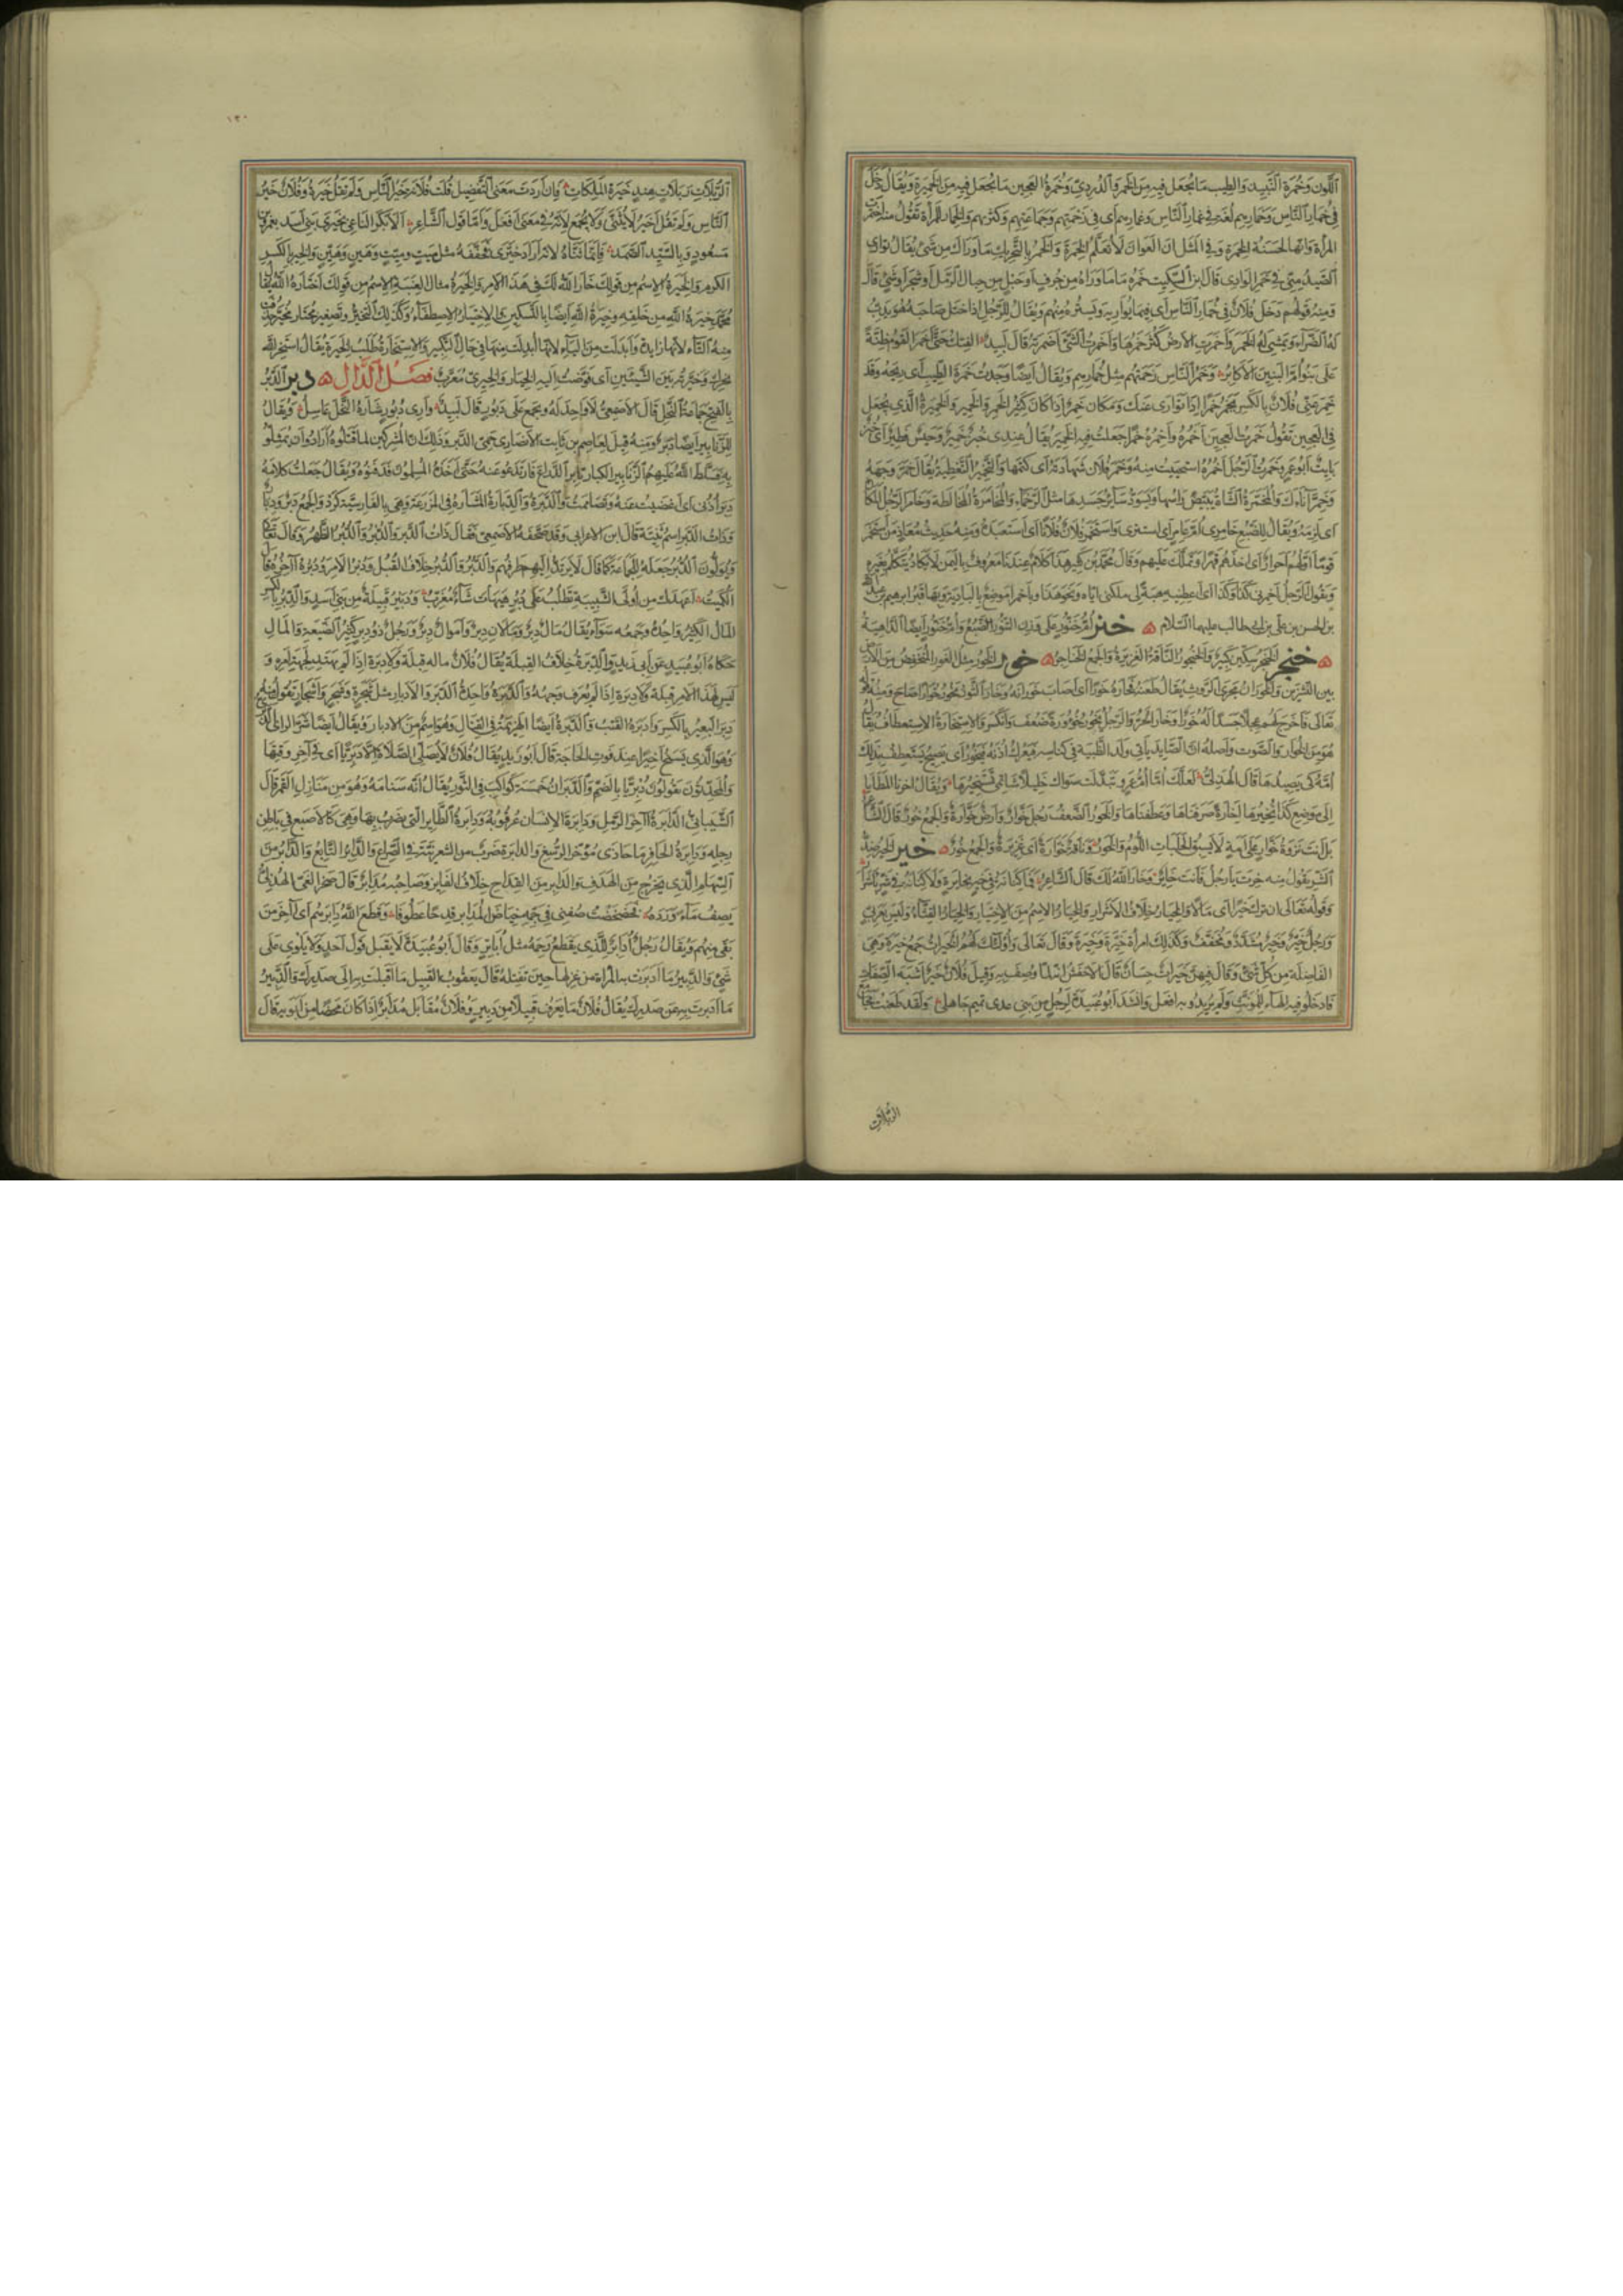 اللون وخمرة النبيذ والطيب ما يجعل فيه من الخمر والدردي وخمرة العجين ما يجعل فيه من الخميرة ويقال دخل
في خمار الناس وخمارهم لغة في غمار الناس وغمارهم اى في زحمتهم وجماعتهم وكثرتهم والخمار للمرأة تقول منه اختمرت
المرأة وانها لحسنة الخمرة وفي المثل ان العوان لا تعلم الخمرة والخمر بالتحريك ما واراك من شئ يقال توارى
الصيد منى في خمر الوادى قال ابن السكيت خمره ما واراه من جرف او حبل من حبال الرمل او شجر او شئ قال
ومنه قولهم دخل فلان في خمار الناس أى فيما يواريه ويستره منهم ويقال للرجل اذا ختل صاحبه هو يدب
له الضراء ويمشي له الخمر واخمرت الارض كثر خمرها واخمرت الشئ اضمرته قال لبيد الفتك حتى اخمر القوم ظنة
على بنو أم البنين الاكابر وخمر الناس زحمتهم مثل خمارهم ويقال ايضا وجدت خمرة الطيب أى ريحه وقد
خمر عنى فلان بالكسر يخمر خمرا إذا توارى عنك ومكان خمر إذا كان كثير الخمر والخمير والخميرة الذي يجعل
في العجين تقول خمرت العجين أخمره وأخمره خمرا جعلت فيه الخمير يقال عندى خبز خمير وحيس فطير أى خبز
بايت أبو عمرو خمرت الرجل أخمره استحييت منه وخمر فلان شهادته أى كتمها والتخمير التغطية يقال خمر وجهه
وخمر اناءك والمخمرة الشاة يبيض راسها ويسود سائر جسدها مثل الرخماء والمخامرة المخالطة وخامر الرجل المكان
اى لزمه ويقال للضبع خامرى ام عامر أى استترى واستخمر فلان فلانا اى استعبده ومنه حديث معاذ من استخمر
قوما اولهم احرار أى اخذهم قهرا وتملك عليهم وقال محمد بن كثير هذا كلام عندنا معروف باليمن لا يكاد يتكلم بغيره
ويقول الرجل اخمرنى كذا وكذا اى اعطنيه هبة لى ملكنى اياه ونحو هذا وباخمرا موضع بالبادية وبها قبر ابرهيم بن عبد الله
بن الحسن بن على بن ابى طالب عليهما السلام ه خنر ام خنور على وزن التنور الضبع وام خنور ايضا الداهية
ه خنجر الخنجر سكين كبيرة والخنجور الناقة الغزيرة والجمع الخناجر ه خور الخور مثل الغور المنخفض من الارض
بين النشزين والخوران مجرى الروث يقال طعنه فخاره خورا اى اصاب خورانه وخار الثور يخور خوارا صاح ومنه قوله
تعالى فاخرج لهم عجلا جسدا له خوار وخار الحر والرجل يخور خؤورة ضعف وانكسر والاستخارة الاستعطاف يقال
هو من الخوار والصوت واصله ان الصايد يأتى ولد الظبية في كناسه فيعرك اذنه فيخور أى يصيح يستعطف بذلك
امه كى يصيدها قال الهذلى لعلك اما ام عمرو تبدلت سواك خليلا شاتمى تستخيرها ويقال اخرنا المطايا
إلى موضع كذا نخيرها إخارة صرفناها وعطفناها والخور الضعف رجل خوار وارض خوارة والجمع خور قال الشاعر
بل انت نزوة خوار على امة لا يسبق الحلبات اللؤم والخور وناقة خوارة أى غزيرة والجمع خور ه خير الخير ضد
الشر يقول منه خرت يا رجل فانت خاير وخار الله لك قال الشاعر فما كنانة في خير بخايرة ولا كنانة في شر باشرار
وقوله تعالى ان ترك خيرا اى مالا والخيار خلاف الاشرار والخيار الاسم من الاختيار والخيار القثاء وليس بعربى
ورجل خير وخير مشدد ومخفف وكذلك امراة خيرة وخيرة وقال تعالى واولئك لهم الخيرات جمع خيرة وهى
الفاضلة من كل شئ وقال فيهن خيرات حسان قال الاخفش انه لما وصف به وقيل فلان خير اشبه الصفات
فادخلوا فيه الهاء للمؤنث ولم يريدوا به افعل وانشد ابو عبيدة لرجل من بنى عدى تميم جاهلى ولقد طعنت مجامع
الربلات
١٣٠
الربلات ربلات هند خيرة الملكات فإن اردت معنى التفضيل قلت فلانة خير الناس ولم تقل خيرة وفلان خير
الناس ولم تقل أخير لا يثنى ولا يجمع لانه في معنى افعل واما قول الشاعر الا بكر الناعى بخيرى بنى اسد بعمرو بن
مسعود وبالسيد الصمد فإنما ثناه لانه أراد خيرى فخففه مثل ميت وميت وهين وهين والخير بالكسر
الكرم والخيرة الاسم من قولك خار الله لك في هذا الامر والخيرة مثال العنبة الاسم من قولك اختاره الله يقال
محمد خيرة الله من خلقه وخيرة الله ايضا بالتسكين والاختيار الاصطفاء وكذلك التخير وتصغير مختار مخير حذفت
منه التاء لانها زايدة وأبدلت من الياء لانها ابدلت منها في حال التكبير والاستخارة طلب الخيرة يقال استخر الله
يخر لك وخيرته بين الشيئين أى فوضت اليه الخيار والخيرى معرب فصل الدال ه دبر الدبر
بالفتح جماعة النحل قال الاصمعى لا واحد له ويجمع على دبور قال لبيد وارى دبور شاره النحل عاسل ويقال
للزنابير ايضا دبر ومنه قيل لعاصم بن ثابت الانصارى حمى الدبر وذلك ان المشركين لما قتلوه أرادوا أن يمثلوا
به فسلط الله عليهم الزنابير الكبار تابر الدارع فارتدعوا عنه حتى اخذه المسلمون فدفنوه ويقال جعلت كلامه
دبر أذنى اى اغضيت عنه وتصاممت والدبرة والدبارة المشارة في المزرعة وهى بالفارسية كرد والجمع دبر ودبار
وذات الدبر اسم ثنية قال ابن الاعرابى وقد صحفه الاصمعى فقال ذات الدير والدبر والدبر الظهر وقال تعالى
ويولون الدبر جعله للجماعة كما قال لا يرتد اليهم طرفهم والدبر والدبر خلاف القبل ودبر الامر ودبره آخره قال
الكميت اعهدك من أولى الشبيبة تطلب على دبر هيهات شأو مغرب ودبير قبيلة من بنى اسد والدبر بالكسر
المال الكثير واحده وجمعه سواء يقال مال دبر ومالان دبر واموال دبر ورجل ذو دبر كثير الضيعة والمال
حكاه ابو عبيد عن أبى زيد والدبرة خلاف القبلة يقال فلان ماله قبلة ولا دبرة إذا لم يهتد لجهة امره و
ليس لهذا الامر قبلة ولا دبرة إذا لم يعرف وجهه والدبرة واحدة الدبر والادبار مثل شجرة وشجر واشجار تقول منه
دبر البعير بالكسر وادبره القتب والدبرة ايضا الهزيمة في القتال وهو اسم من الادبار ويقال ايضا شر الراى الدبرى
وهو الذى يسنح اخيرا عند فوت الحاجة قال أبو زيد يقال فلان لا يصلى الصلاة إلا دبريا اى في آخر وقتها
والمحدثون يقولون دبريا بالضم والدبران خمسة كواكب في الثور يقال انه سنامه وهو من منازل القمر قال
الشيبانى الدابرة آخر الرمل ودابرة الانسان عرقوبه ودابرة الطاير التى يضرب بها وهى كالاصبع في باطن
رجليه ودابرة الحافر ما حاذى مؤخر الرسغ والدابرة ضرب من الشغزبية في الصراع والدابر التابع والدابر من
السهام الذى يخرج من الهدف والدابر من القداح خلاف الفايز وصاحبه مدابر قال صخر الغى الهذلى
يصف ماء ورده فخضخضت صفنى في جمه خياض المدابر قدحا عطوفا وقطع الله دابرهم أى آخر من
بقى منهم ويقال رجل أدابر للذى يقطع رحمه مثل أباتر وقال أبو عبيدة لا يقبل قول احد ولا يلوى على
شئ والدبير ما ادبرت به المرأة من غزلها حين تفتله قال يعقوب القبيل ما اقبلت به الى صدرك والدبير
ما ادبرت به عن صدرك يقال فلان ما يعرف قبيلا من دبير وفلان مقابل مدابر إذا كان محضا من ابويه قال